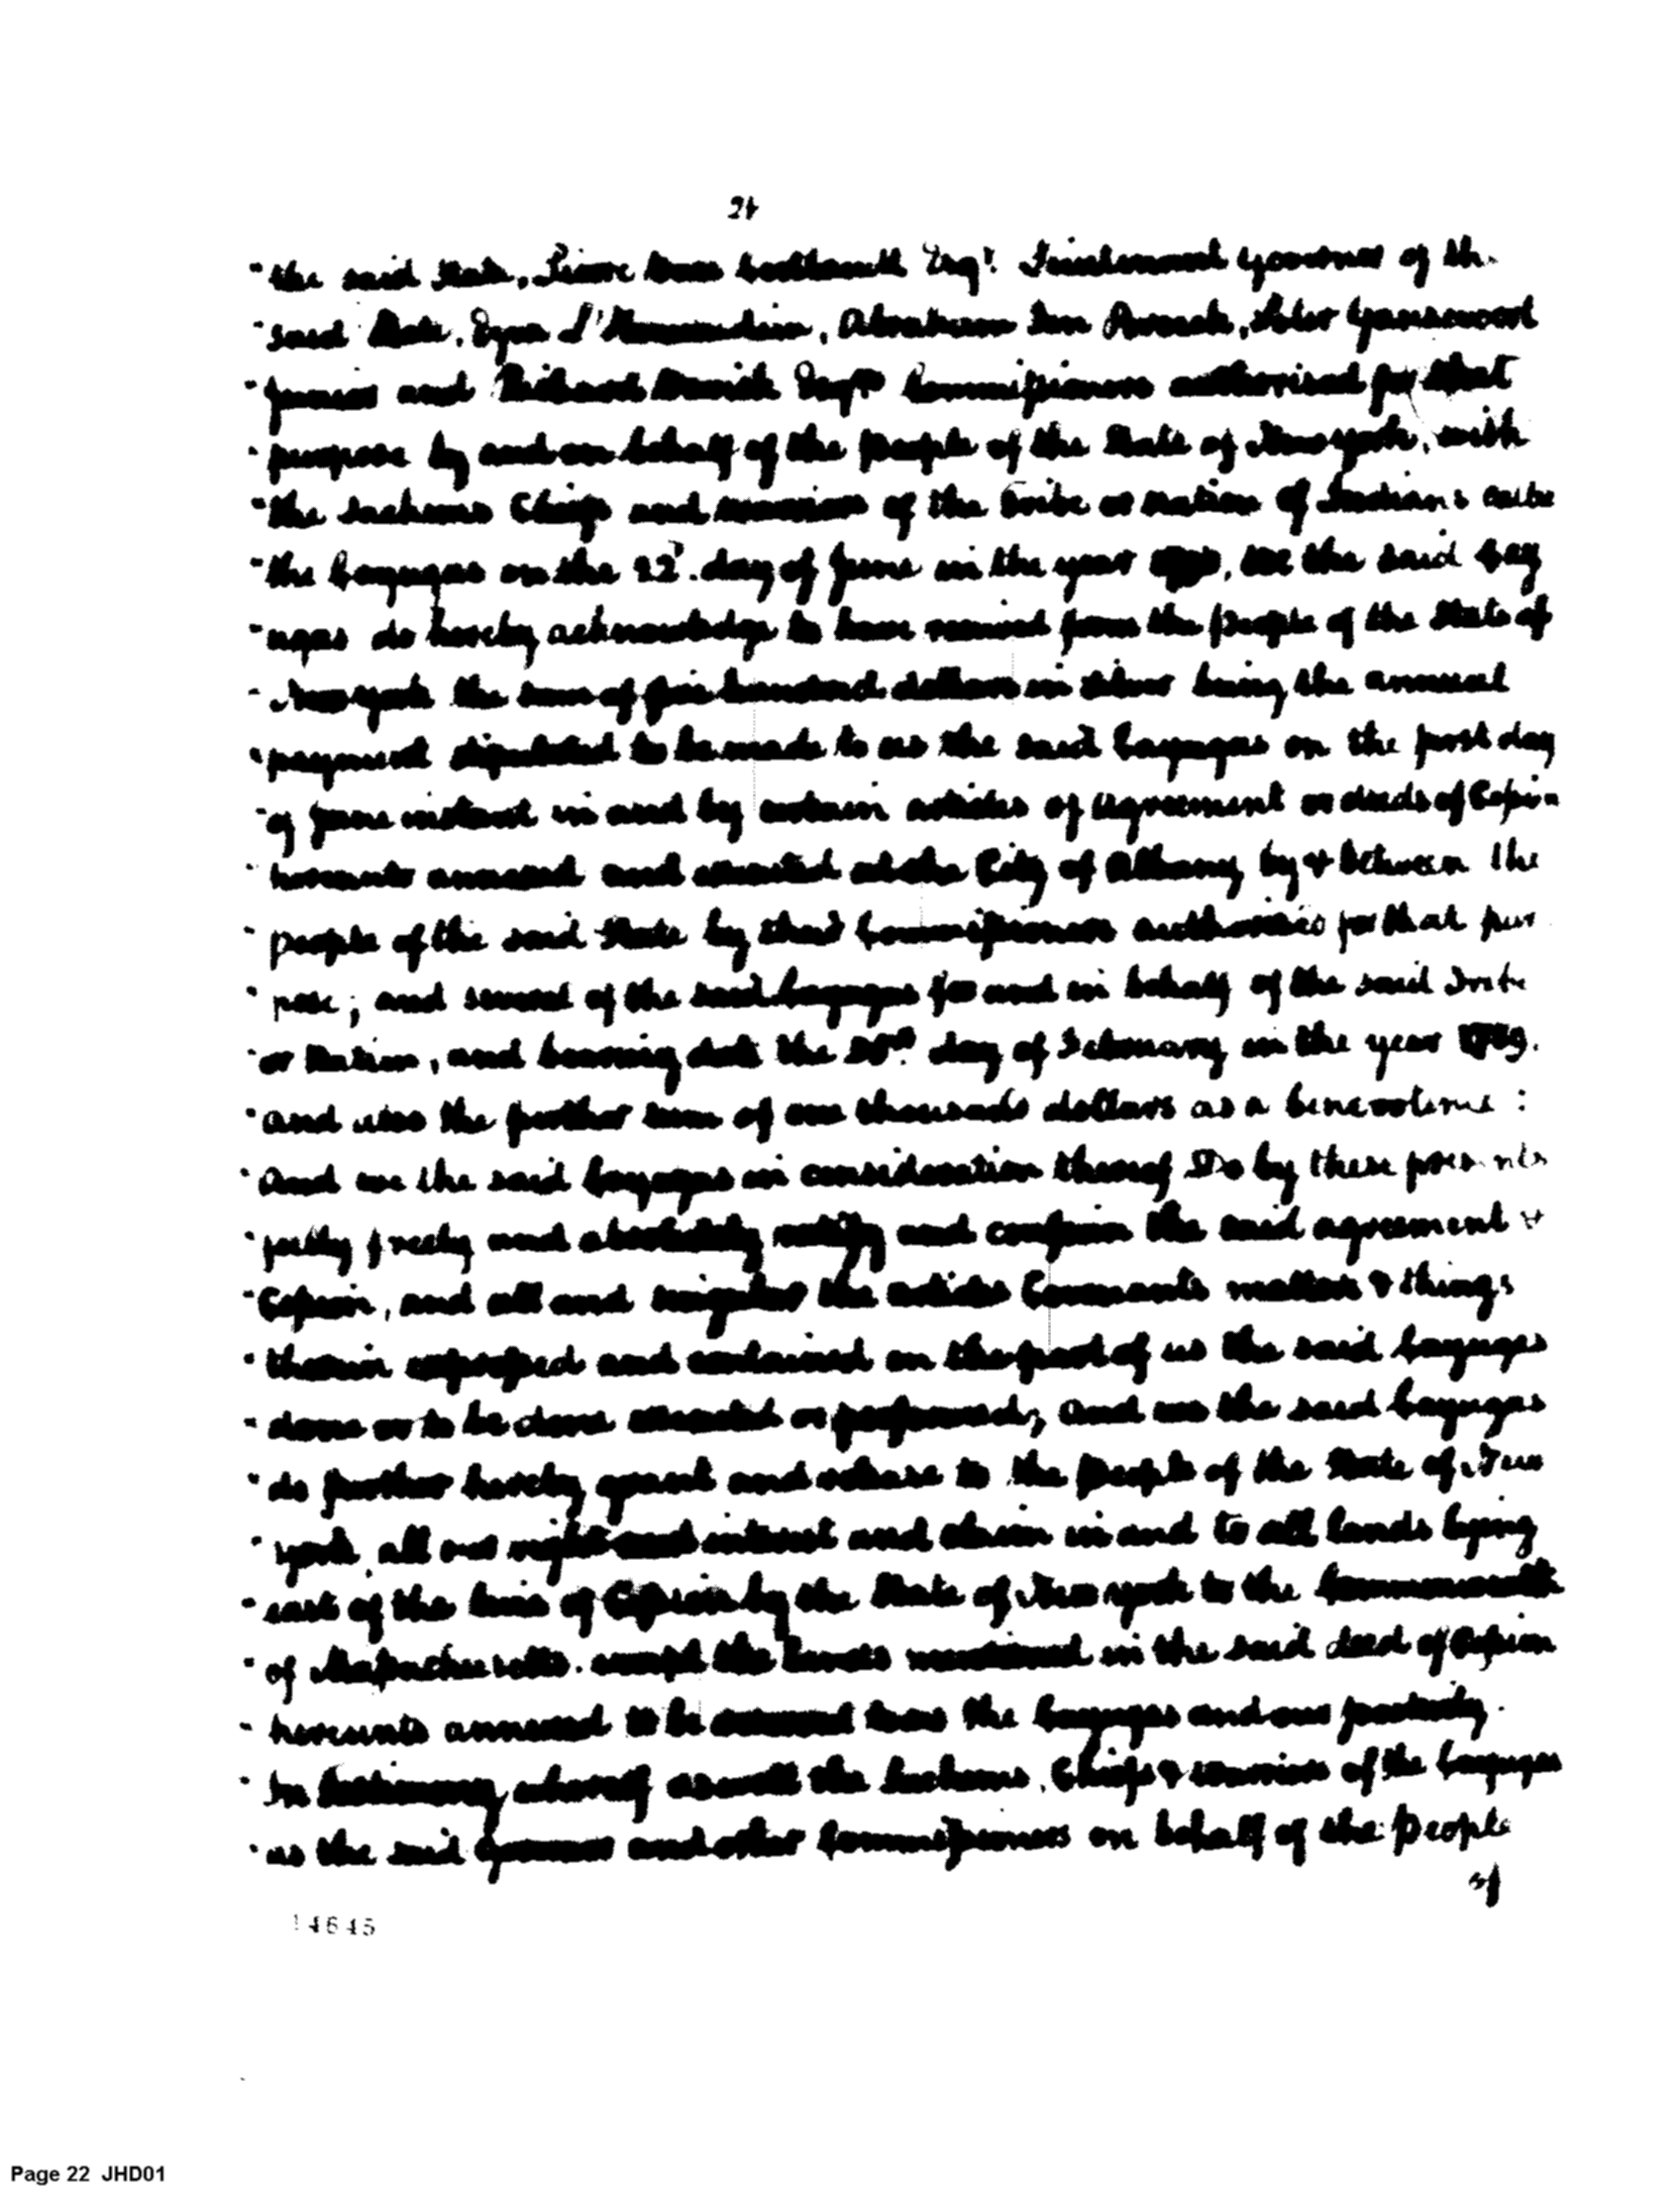 24
"the said State, Pierre Van Cortlandt Esqr. Lieutenant Governor of the
"said State, Ezra L'Hommedieu, Abraham Ten Broeck, Peter Gansevoort
"junior and Richard Varick Esqrs Commissioners authorised for that
"purpose by and on behalf of the people of the State of New york, with
"the Sachems Chiefs and warriors of the tribe or nation of Indians calle
"the Cayugas on the 22d. day of June in the year 1790, we the said Cay
"ugas do hereby acknowledge to have received from the people of the State of
"New york the sum of five hundred dollars in silver being the annual
"payment stipulated to be made to us the said Cayugas on the first day
"of June instant in and by certain articles of agreement or deeds of Cession
"hereunto annexed and executed at the City of Albany by & between the
"people of the said State by their Commissioners authorised for that pur
"pose; and several of the said Cayugas for and in behalf of the said Tribe
"or Nation, and bearing date the 25th day of February in the year 1789.
"and also the further sum of one thousand dollars as a benevolence:
"And we the said Cayugas in consideration thereof Do by these presents
"fully freely and absolutely ratify and confirm the said agreement &
"Cession, and all and singular the articles Covenants matters & things
"therein expressed and contained on the part of us the said Cayugas
"done or to be done executed or performed; and we the said Cayugas
"do further hereby grant and release to the People of the State of New
"york, all our right and interest and claim in and to all lands lying
"east of the line of Cession by the State of New york to the Commonwealth
"of Massachusetts. except the lands mentioned in the said deed of Cession
"hereunto annexed to be reserved to us the Cayugas and our posterity.
"In testimony whereof as well the Sachems, Chiefs & warriors of the Cayugas
"as the said Governor and other Commissioners on behalf of the People
of
14645
Page 22 JHD01